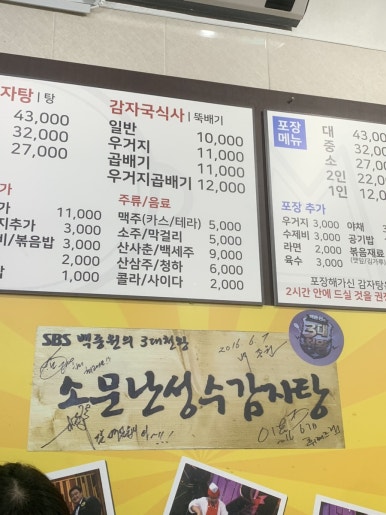 자탕 | 탕
43,000
32,000
27,000
가
11,000
지추가 3,000
비/볶음밥 3,000
2,000
1,000
감자국식사 | 뚝배기
일반 10,000
우거지 11,000
곱배기 11,000
우거지곱배기 12,000
주류/음료
맥주(카스/테라) 5,000
소주/막걸리 5,000
산사춘/백세주 9,000
산삼주/청하 6,000
콜라/사이다 2,000
포장
메뉴
대 43,000
중 32,000
소 27,000
2인 22,0
1인 12,0
포장 추가
우거지 3,000 야채
수제비 3,000 공기밥
라면 2,000 볶음재료
육수 3,000
포장해가신 감자탕은
2시간 안에 드실 것을 권
SBS 백종원의 3대천왕
2016.6.7
소문난성수감자탕